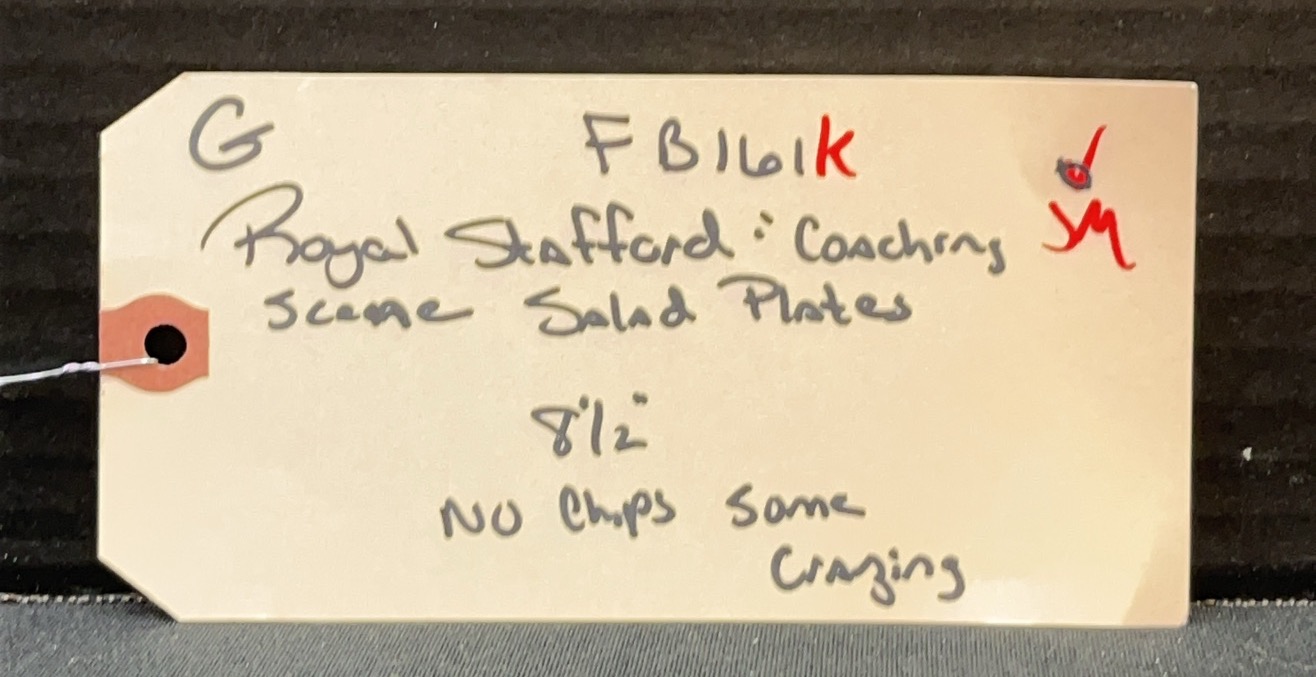 G FB161K
Royal Stafford : Coaching JM
Scene Salad Plates
8 1/2"
NO Chips Some
Crazing